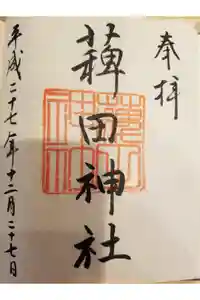 奉拝
薭田神社
薭田
神社
平成二十七年十二月二十七日